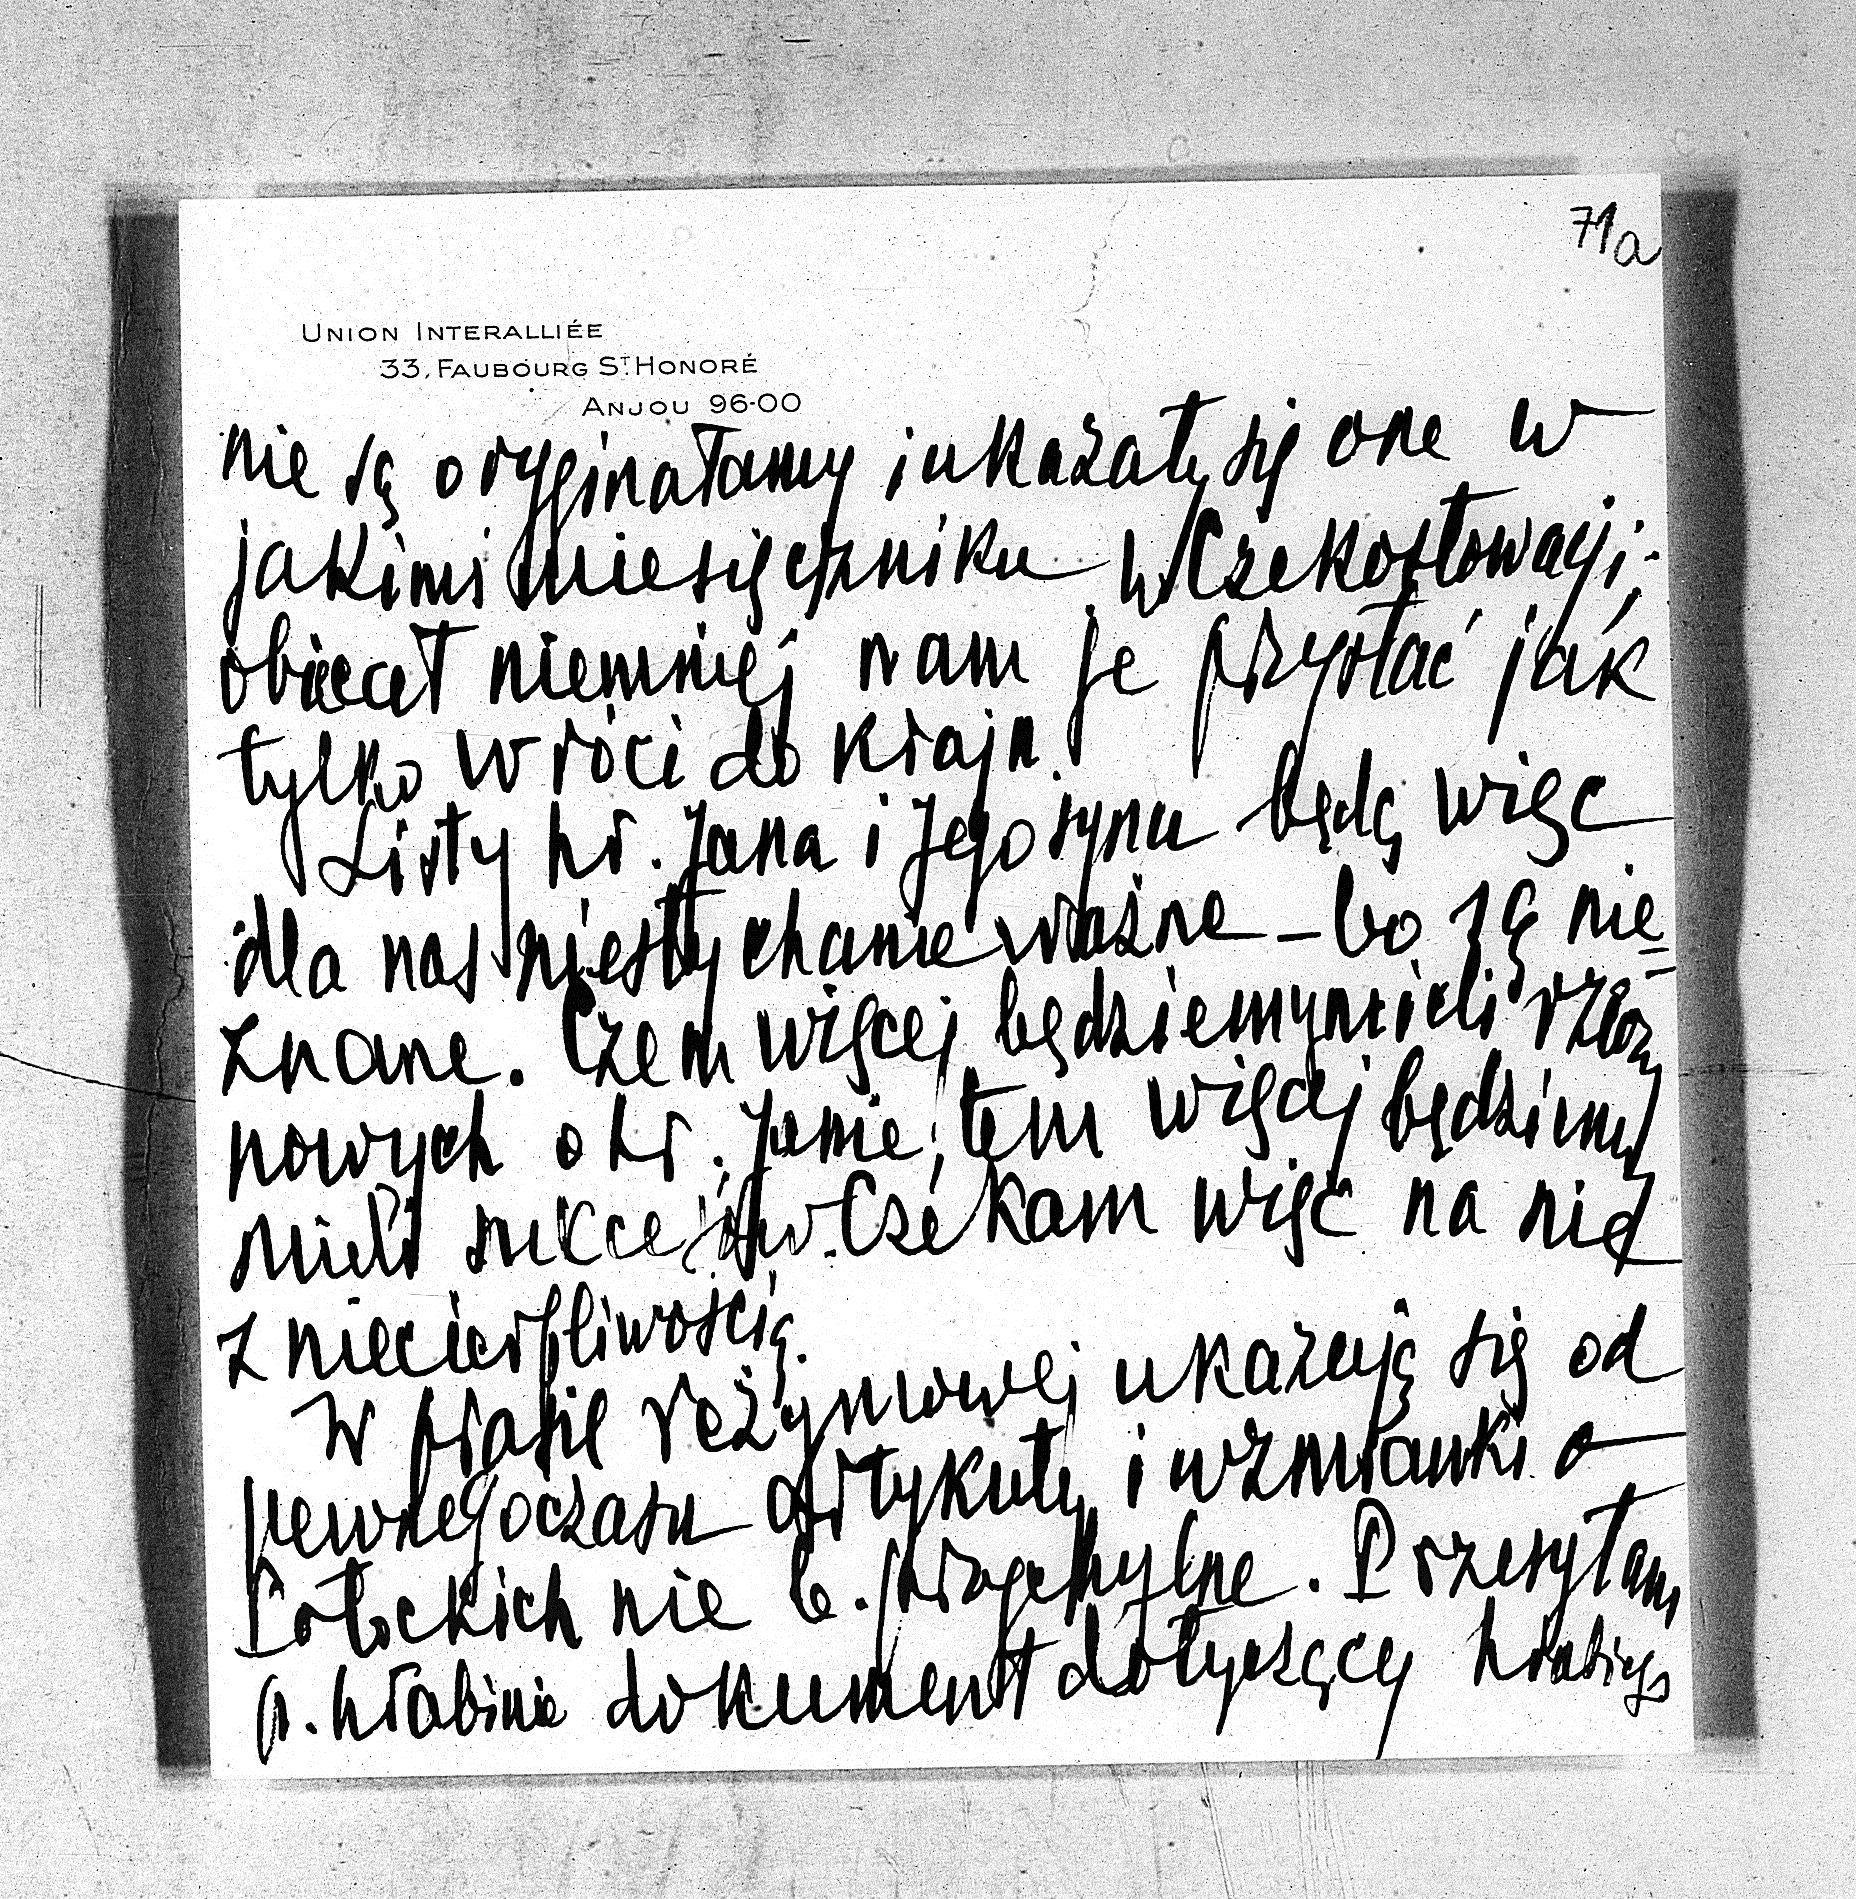 71a
UNION INTERALLIÉE
33, FAUBOURG ST. HONORÉ
ANJOU 96-00
nie są oryginałamy i ukazały się one w
jakimś miesięczniku w Czekosłowacji;
obiecał niemniej nam je przysłać jak
tylko wróci do kraju.
Listy hr. Jana i Jego synu będą więc
dla nas niesłychanie ważne – bo są nie=
znane. Czem więcej będziemy mieli rzeczy
nowych o hr. Janie, tem więcej będziemy
mieli sukcesów. Czekam więc na nie
z niecierpliwością.
W prasie reżymowej ukazują się od
pewnego czasu artykuły i wzmianki o
Potockich nie b. przychylne. Przesyłam
p. hrabinie dokument dotyczący hrabiego